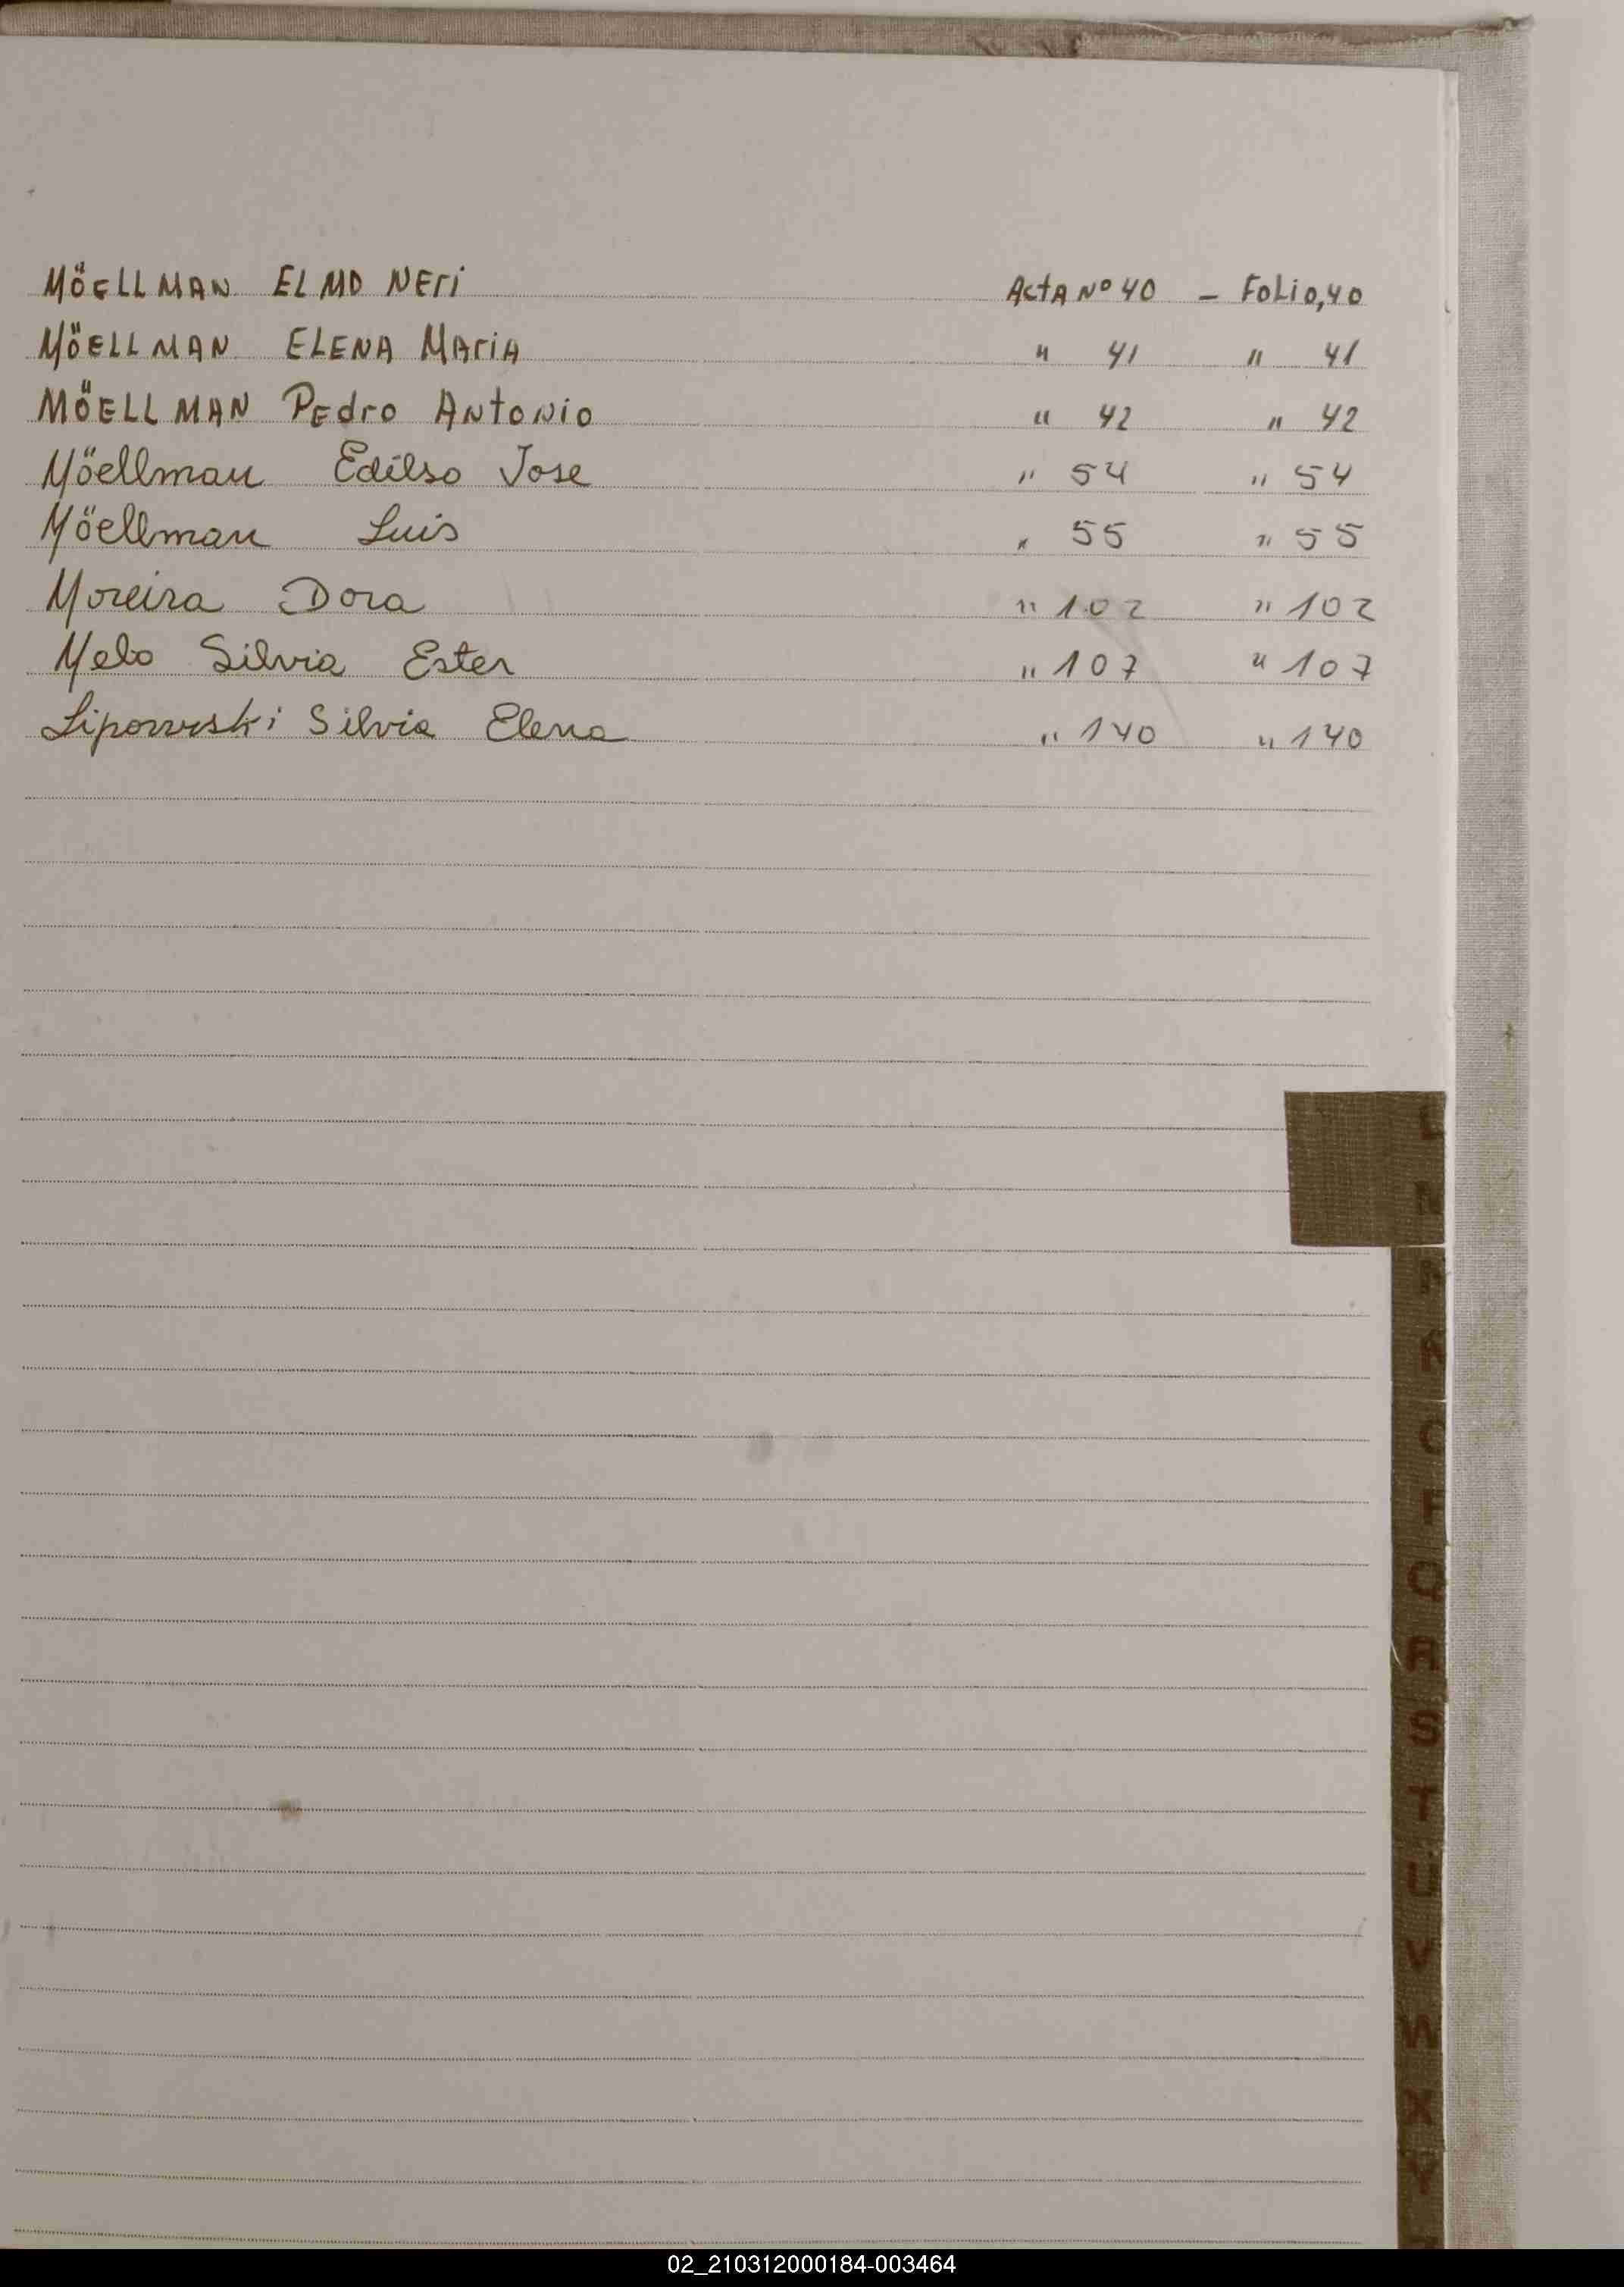 MÖELLMAN ELMO NEri ActA Nº 40 - FoLio, 40
MÖELLMAN ELENA MAriA " 41 " 41
MÖELLMAN PEdro ANtoNio " 42 " 42
Möellman Edilso Jose " 54 " 54
Möellman Luis " 55 " 55
Moreira Dora " 102 " 102
Melo Silvia Ester " 107 " 107
Lipowski Silvia Elena " 140 " 140
L
N
O
Q
R
S
T
U
V
W
X
Y
02_210312000184-003464